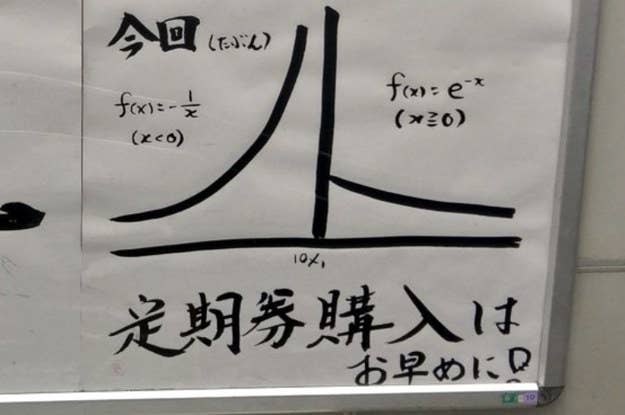 今回(たぶん)
f(x)=-1/x
(x<0)
f(x)=e^{-x}
(x≧0)
10/1
定期券購入は
お早めに!